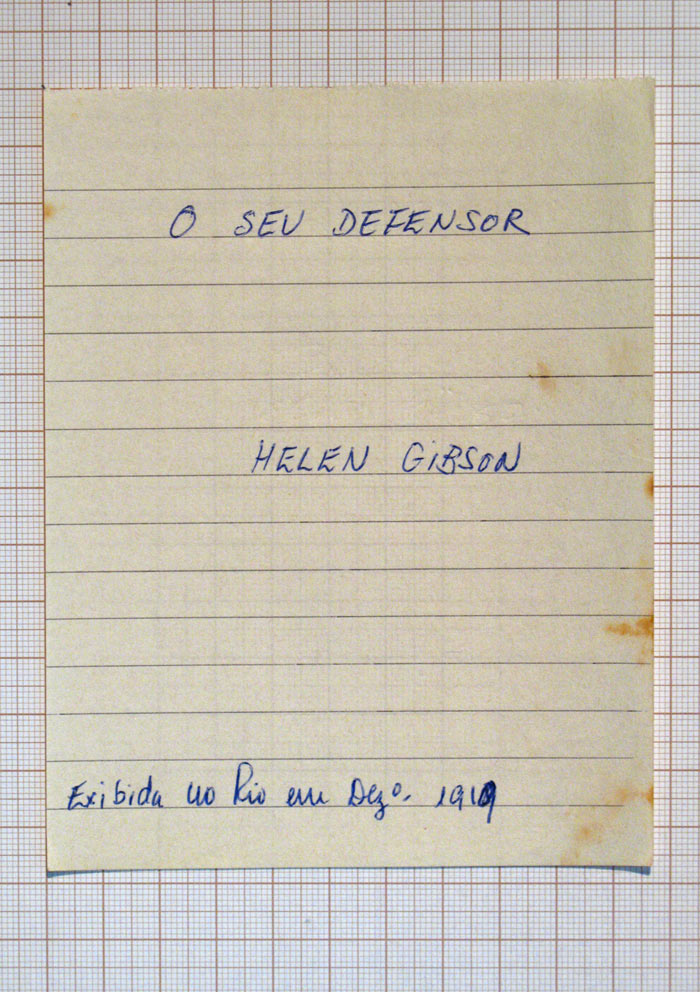 O SEU DEFENSOR
HELEN GIBSON
Exibida no Rio em Dezº. 1919